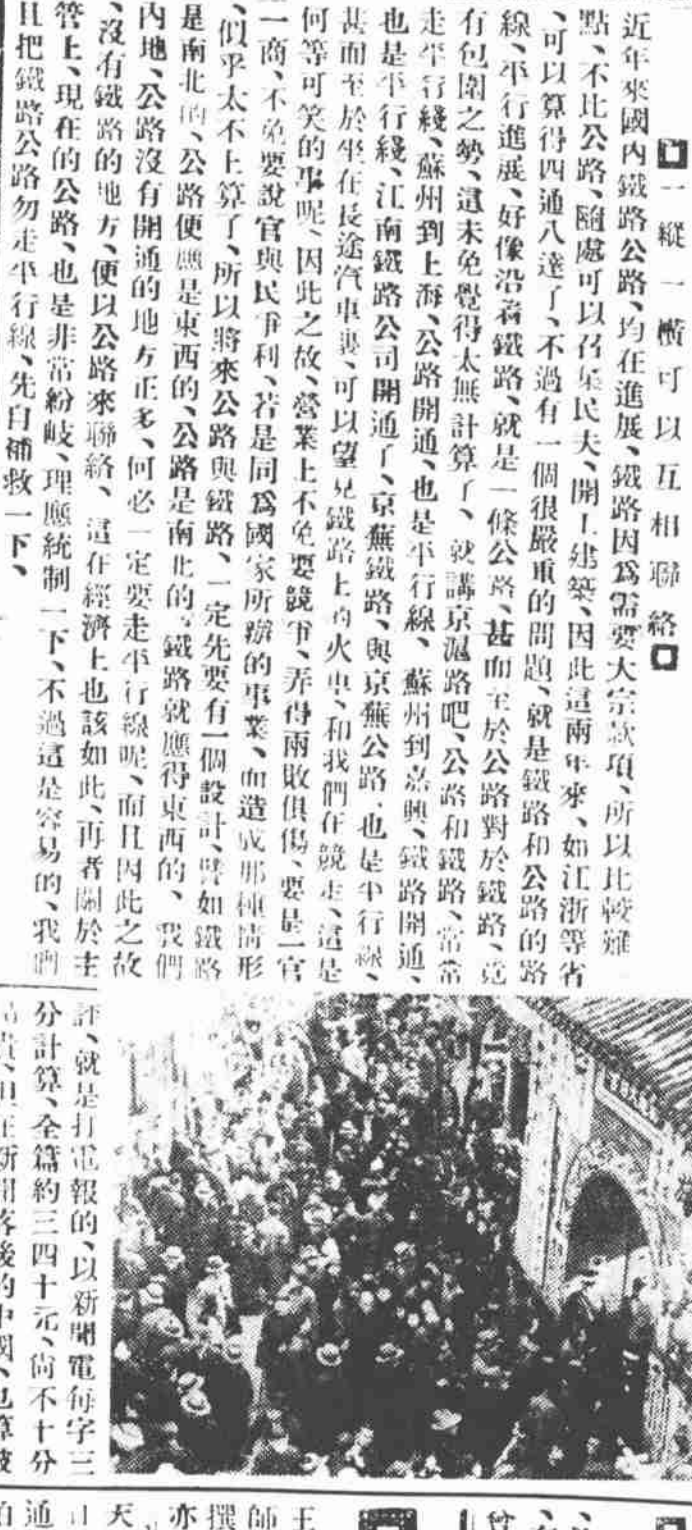 一縱一橫可以互相聯絡
近年來國內鐵路公路、均在進展、鐵路因爲需要大宗款項、所以比較難
點、不比公路、隨處可以召集民夫、開工建築、因此這兩年來、如江浙等省
、可以算得四通八達了、不過有一個很嚴重的問題、就是鐵路和公路的路
線、平行進展、好像沿着鐵路、就是一條公路、甚而至於公路對於鐵路、竟
有包圍之勢、這未免覺得太無計算了、就講京滬路吧、公路和鐵路、常常
走平行綫、蘇州到上海、公路開通、也是平行線、蘇州到嘉興、鐵路開通、
也是平行綫、江南鐵路公司開通了、京蕪鐵路、與京蕪公路、也是平行線、
甚而至於坐在長途汽車裏、可以望見鐵路上的火車、和我們在競走、這是
何等可笑的事呢、因此之故、營業上不免要競爭、弄得兩敗俱傷、要是一官
一商、不免要說官與民爭利、若是同爲國家所辦的事業、而造成那種情形
、似乎太不上算了、所以將來公路與鐵路、一定先要有一個設計、譬如鐵路
是南北的、公路便應是東西的、公路是南北的、鐵路就應得東西的、我們
內地、公路沒有開通的地方正多、何必一定要走平行線呢、而且因此之故
、沒有鐵路的地方、便以公路來聯絡、這在經濟上也該如此、再者關於主
管上、現在的公路、也是非常紛岐、理應統制一下、不過這是容易的、我們
且把鐵路公路勿走平行線、先自補救一下、
評、就是打電報的、以新聞電每字三
分計算、全篇約三四十元、尙不十分
貴、但在新聞落後的中國、也算破
王
師
撰
亦
天
通